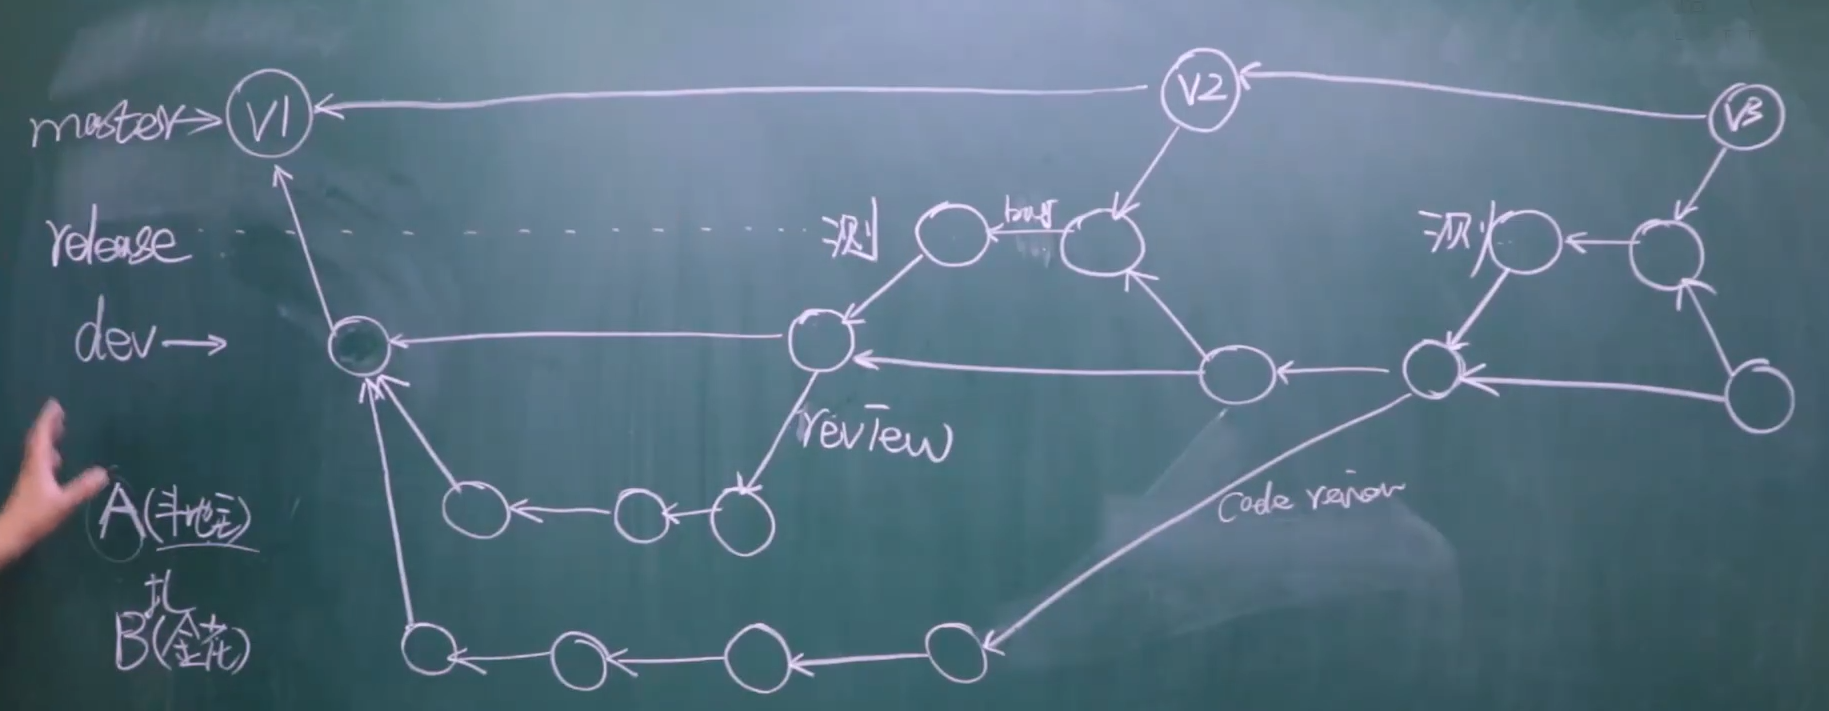 master
V1
V2
V3
release
测
bug
测
dev
review
A(斗地主)
code review
扎
B(金花)